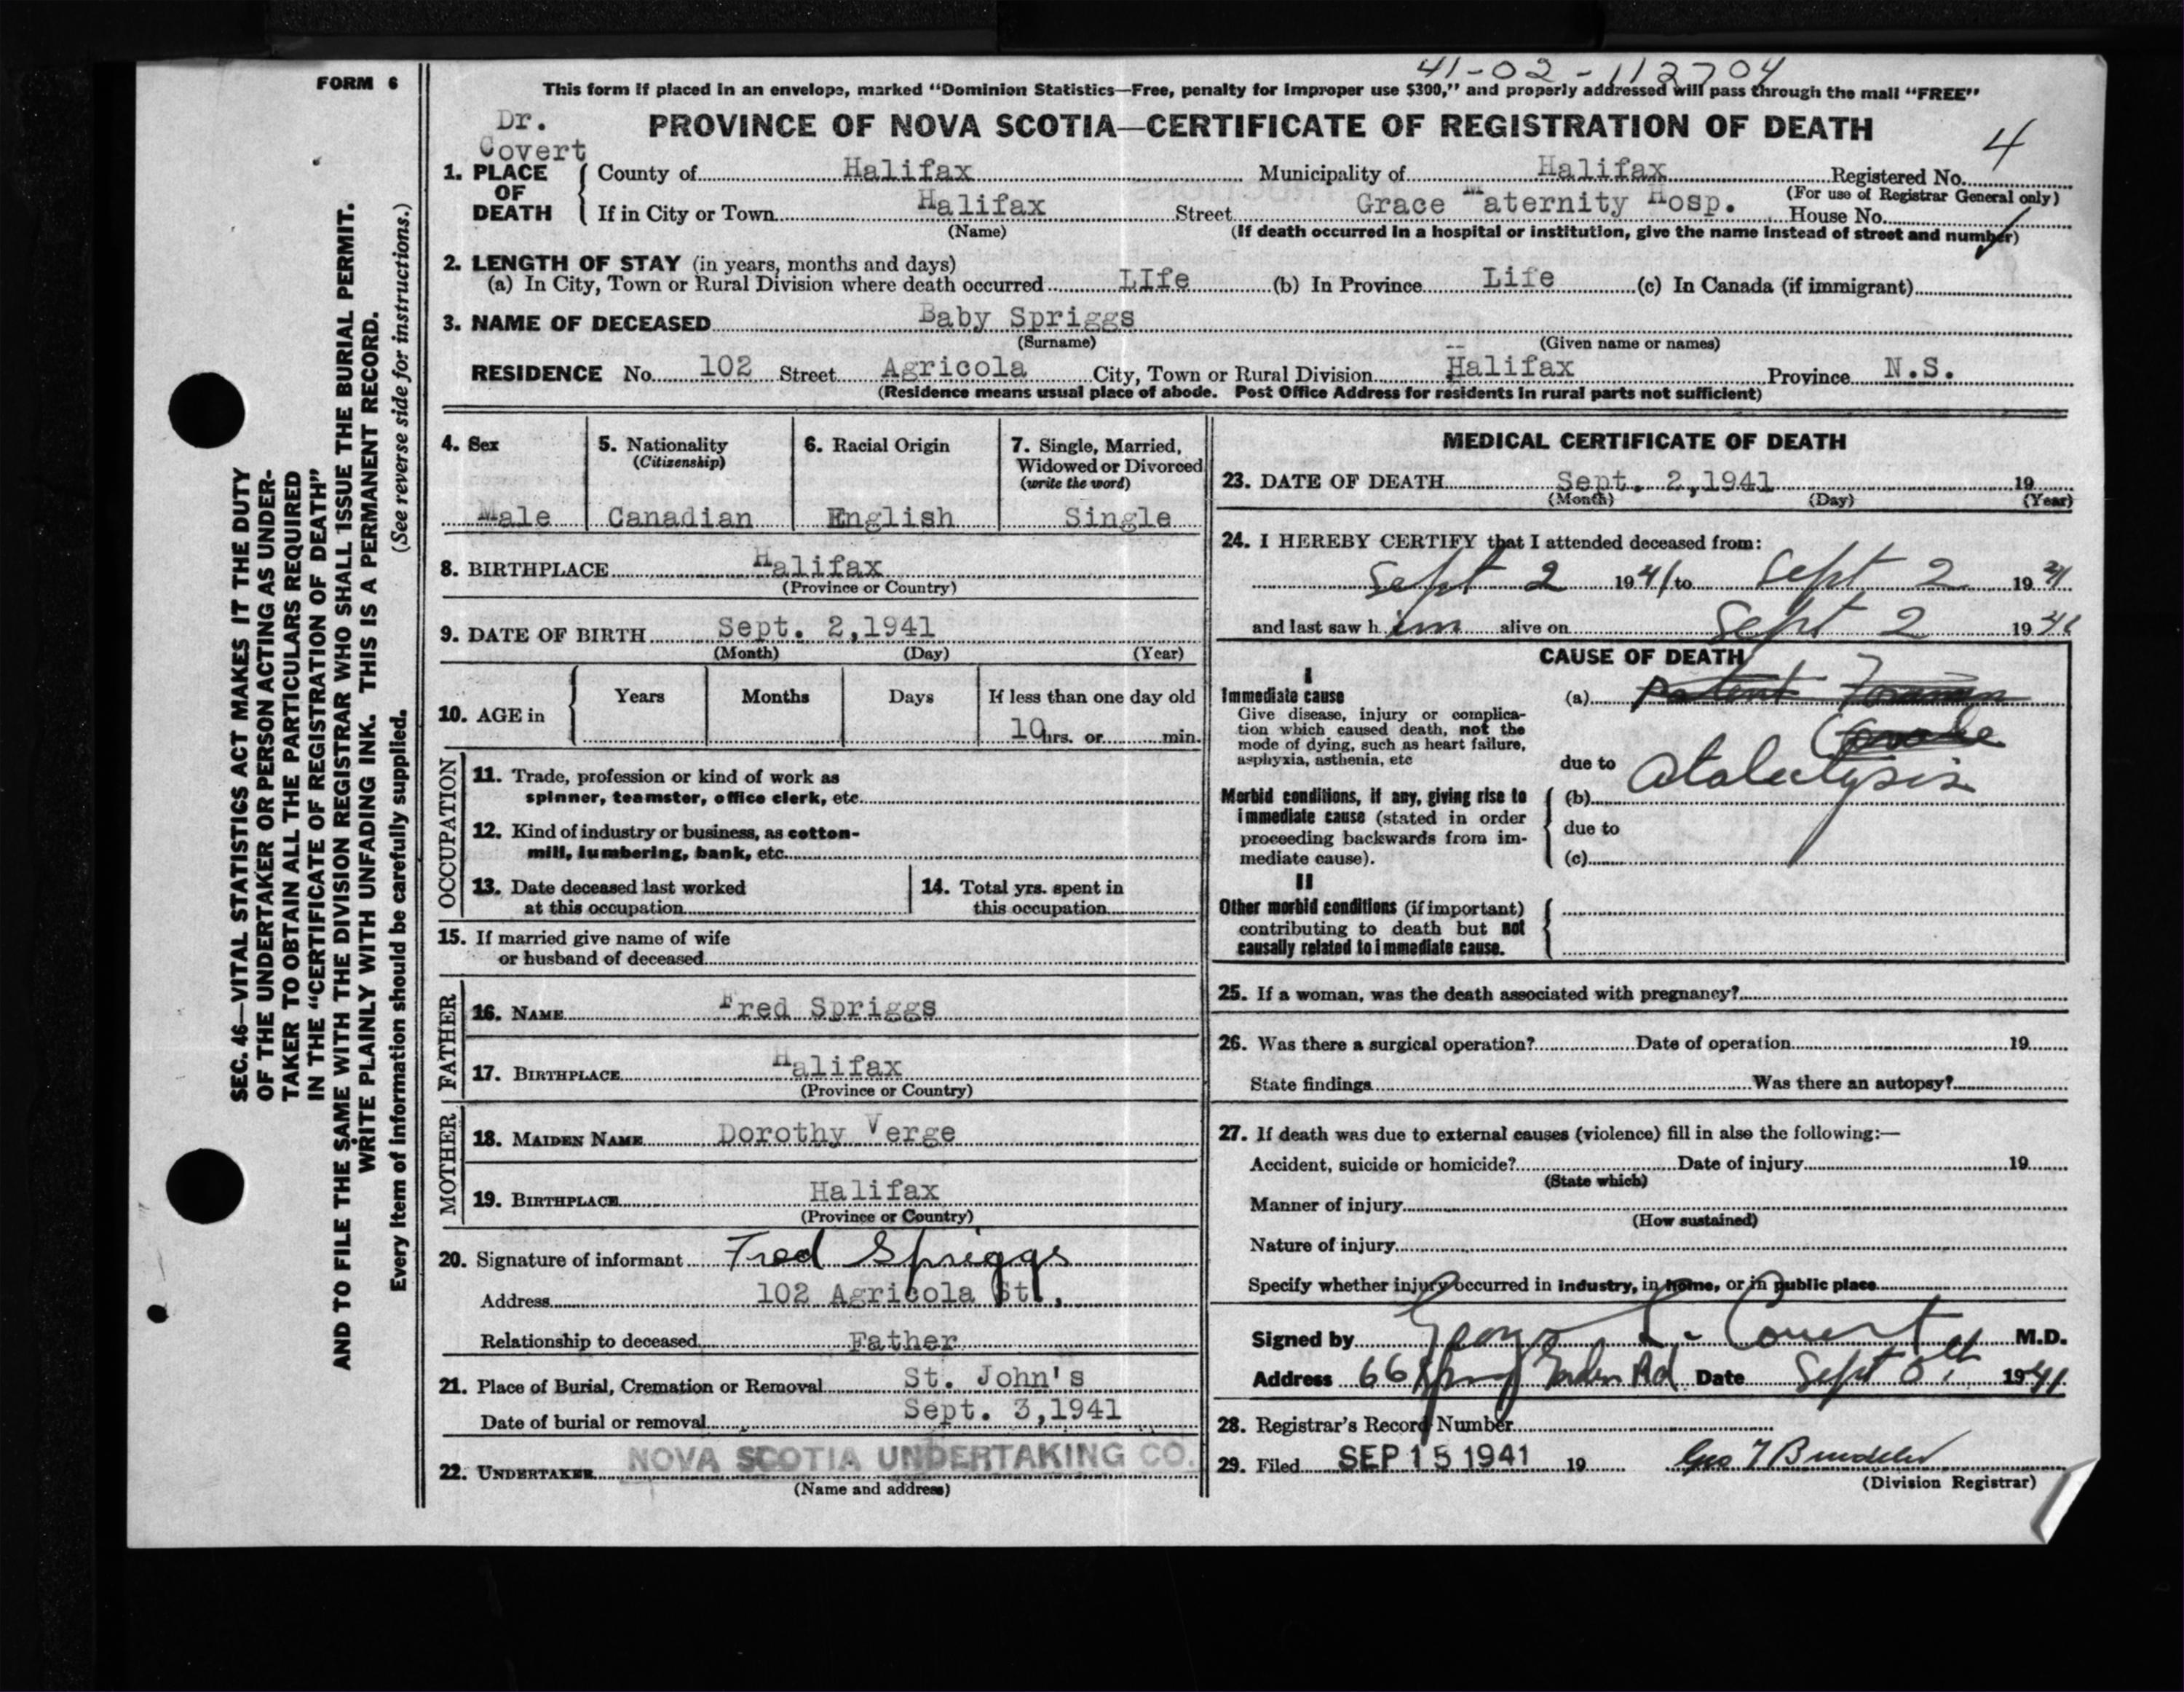 41-02-112704
FORM 6
This form if placed in an envelope, marked "Dominion Statistics—Free, penalty for improper use $300," and properly addressed will pass through the mail "FREE"
Dr.
Covert
PROVINCE OF NOVA SCOTIA—CERTIFICATE OF REGISTRATION OF DEATH
4
1. PLACE OF DEATH
County of Halifax Municipality of Halifax Registered No.
(For use of Registrar General only)
If in City or Town Halifax Street Grace Maternity Hosp. House No.
(Name) (If death occurred in a hospital or institution, give the name instead of street and number)
2. LENGTH OF STAY (in years, months and days)
(a) In City, Town or Rural Division where death occurred LIfe (b) In Province Life (c) In Canada (if immigrant)
3. NAME OF DECEASED Baby Spriggs
(Surname) (Given name or names)
RESIDENCE No. 102 Street Agricola City, Town or Rural Division Halifax Province N.S.
(Residence means usual place of abode. Post Office Address for residents in rural parts not sufficient)
4. Sex
Male
5. Nationality
(Citizenship)
Canadian
6. Racial Origin
English
7. Single, Married,
Widowed or Divorced
(write the word)
Single
8. BIRTHPLACE Halifax
(Province or Country)
9. DATE OF BIRTH Sept. 2,1941
(Month) (Day) (Year)
10. AGE in
Years Months Days If less than one day old
10 hrs. or min.
OCCUPATION
11. Trade, profession or kind of work as
spinner, teamster, office clerk, etc.
12. Kind of industry or business, as cotton-
mill, lumbering, bank, etc.
13. Date deceased last worked
at this occupation
14. Total yrs. spent in
this occupation
15. If married give name of wife
or husband of deceased
FATHER
16. NAME Fred Spriggs
17. BIRTHPLACE Halifax
(Province or Country)
MOTHER
18. MAIDEN NAME Dorothy Verge
19. BIRTHPLACE Halifax
(Province or Country)
20. Signature of informant Fred Spriggs
Address 102 Agricola St.,
Relationship to deceased Father
21. Place of Burial, Cremation or Removal St. John's
Date of burial or removal Sept. 3,1941
22. UNDERTAKER NOVA SCOTIA UNDERTAKING CO.
(Name and address)
MEDICAL CERTIFICATE OF DEATH
23. DATE OF DEATH Sept. 2,1941 19
(Month) (Day) (Year)
24. I HEREBY CERTIFY that I attended deceased from:
Sept 2 1941 to Sept 2 1941
and last saw him alive on Sept 2 1941
CAUSE OF DEATH
I
Immediate cause
Give disease, injury or complica-
tion which caused death, not the
mode of dying, such as heart failure,
asphyxia, asthenia, etc
(a) Patent Foramen
due to
Atalectysis
Morbid conditions, if any, giving rise to
immediate cause (stated in order
proceeding backwards from im-
mediate cause).
(b)
due to
(c)
II
Other morbid conditions (if important)
contributing to death but not
causally related to immediate cause.
25. If a woman, was the death associated with pregnancy?
26. Was there a surgical operation? Date of operation 19
State findings Was there an autopsy?
27. If death was due to external causes (violence) fill in also the following:—
Accident, suicide or homicide? Date of injury 19
(State which)
Manner of injury
(How sustained)
Nature of injury
Specify whether injury occurred in industry, in home, or in public place
Signed by George L. Covert M.D.
Address 66 Spring Garden Rd Date Sept 1941
28. Registrar's Record Number
29. Filed SEP 15 1941 19
(Division Registrar)
SEC. 46—VITAL STATISTICS ACT MAKES IT THE DUTY
OF THE UNDERTAKER OR PERSON ACTING AS UNDER-
TAKER TO OBTAIN ALL THE PARTICULARS REQUIRED
IN THE "CERTIFICATE OF REGISTRATION OF DEATH"
AND TO FILE THE SAME WITH THE DIVISION REGISTRAR WHO SHALL ISSUE THE BURIAL PERMIT.
WRITE PLAINLY WITH UNFADING INK. THIS IS A PERMANENT RECORD.
Every item of information should be carefully supplied. (See reverse side for instructions.)